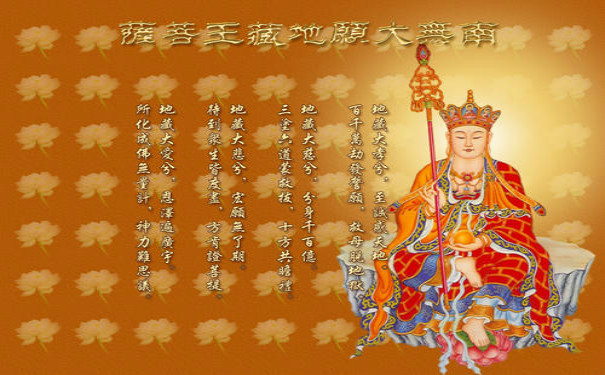 南無大願地藏王菩薩
地藏大孝兮、至誠感天地、
百千萬劫發誓願、救母脫地獄、
地藏大慈兮、分身千百億、
三塗六道蒙救拔、十方共瞻禮、
地藏大悲兮、宏願無了期、
待到眾生皆度盡、方肯證菩提、
地藏大愛兮、恩澤遍廣宇、
所化成佛無量計、神力難思議、